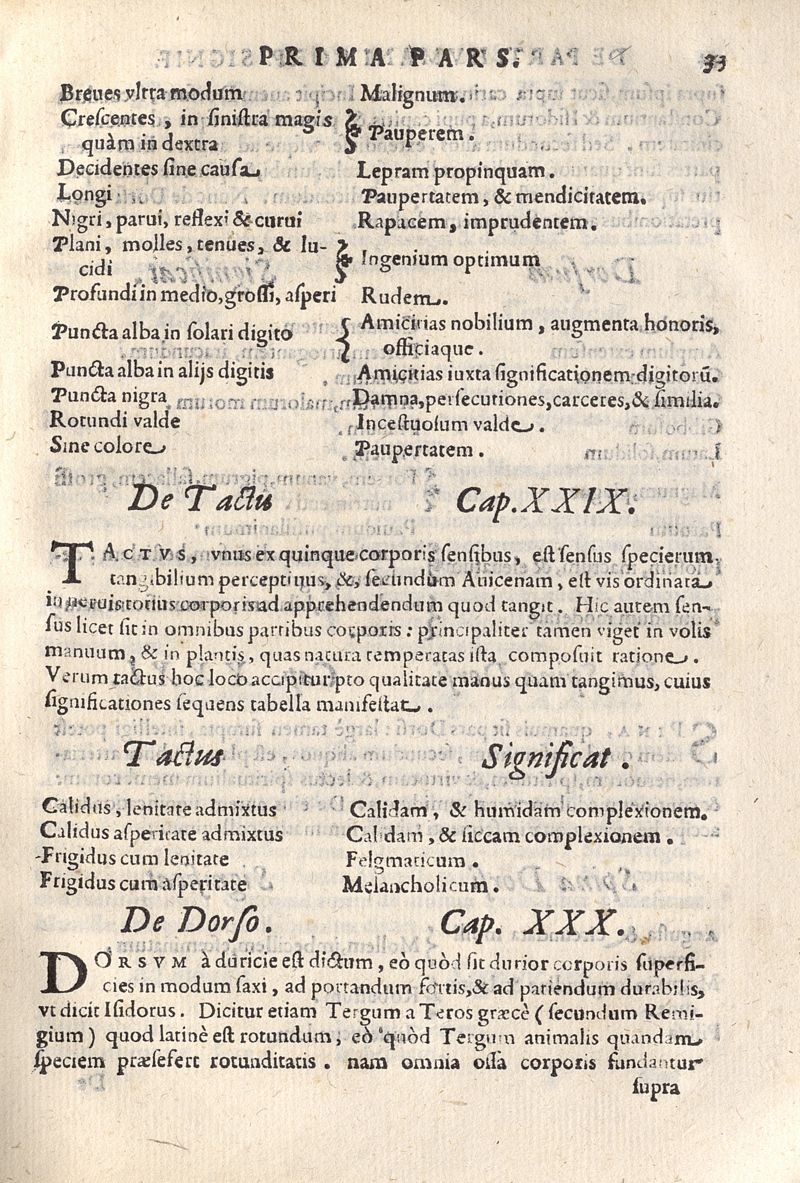 PRIMA PARS. 33
Breues vltra modum Malignum.
Crescentes, in sinistra magis
quàm in dextra Pauperem.
Decidentes sine causa Lepram propinquam.
Longi Paupertatem, & mendicitatem.
Nigri, parui, reflexi & curui Rapacem, imprudentem.
Plani, molles, tenues, & lu-
cidi Ingenium optimum
Profundi in medio, grossi, asperi Rudem.
Puncta alba in solari digito Amicitias nobilium, augmenta honoris,
officiaque.
Puncta alba in alijs digitis Amicitias iuxta significationem digitorũ.
Puncta nigra Damna, persecutiones, carceres, & similia.
Rotundi valde Incestuosum valde.
Sine colore Paupertatem.
De Tactu Cap. XXIX.
TACTVS, vnus ex quinque corporis sensibus, est sensus specierum
tangibilium perceptiuus, &, secundum Auicenam, est vis ordinata
in neruis totius corporis ad apprehendendum quod tangit. Hic autem sen-
sus licet sit in omnibus partibus corporis: principaliter tamen viget in volis
manuum, & in plantis, quas natura temperatas ista composuit ratione.
Verum tactus hoc loco accipitur pro qualitate manus quam tangimus, cuius
significationes sequens tabella manifestat.
Tactus Significat.
Calidus, lenitate admixtus Calidam, & humidam complexionem.
Calidus asperitate admixtus Calidam, & siccam complexionem.
Frigidus cum lenitate Felgmaticum.
Frigidus cum asperitate Melancholicum.
De Dorso. Cap. XXX.
DORSVM à duricie est dictum, eò quòd sit durior corporis superfi-
cies in modum saxi, ad portandum fortis, & ad patiendum durabilis,
vt dicit Isidorus. Dicitur etiam Tergum a Teros græcè (secundum Remi-
gium) quod latinè est rotundum, eò quòd Tergum animalis quandam
speciem præsefert rotunditatis. nam omnia ossa corporis fundantur
supra